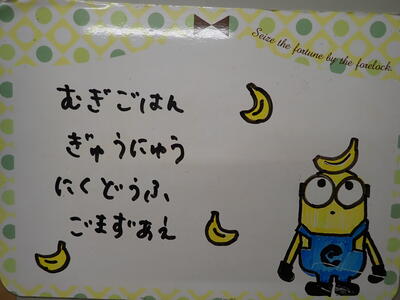 Seize the fortune by the forelock.
むぎごはん
ぎゅうにゅう
にくどうふ
ごまずあえ